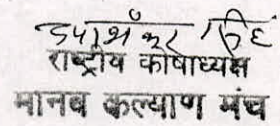 उमाशंकर सिंह
राष्ट्रीय कोषाध्यक्ष
मानव कल्याण मंच